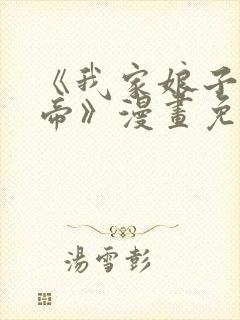 《我家娘子
帝》漫畫免
湯雪彭